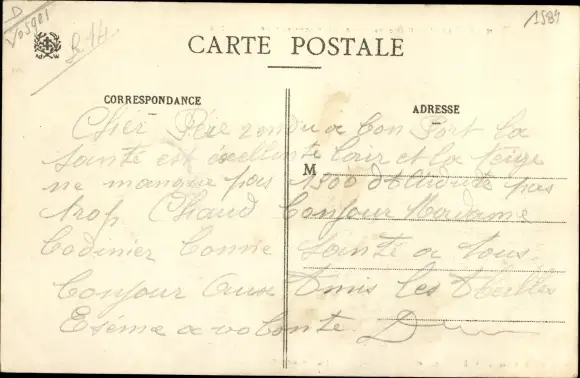 D
Vosges
R.14.
1584
CARTE POSTALE
CORRESPONDANCE
ADRESSE
M
Chér Père rendu a bon Port la
santé est éxellente lair et la neige
ne manque pas 1300 d'Altitude pas
trop Chaud bonjour Madame
Codinier bonne santé a tous.
bonjour aux Amis les
a volonté